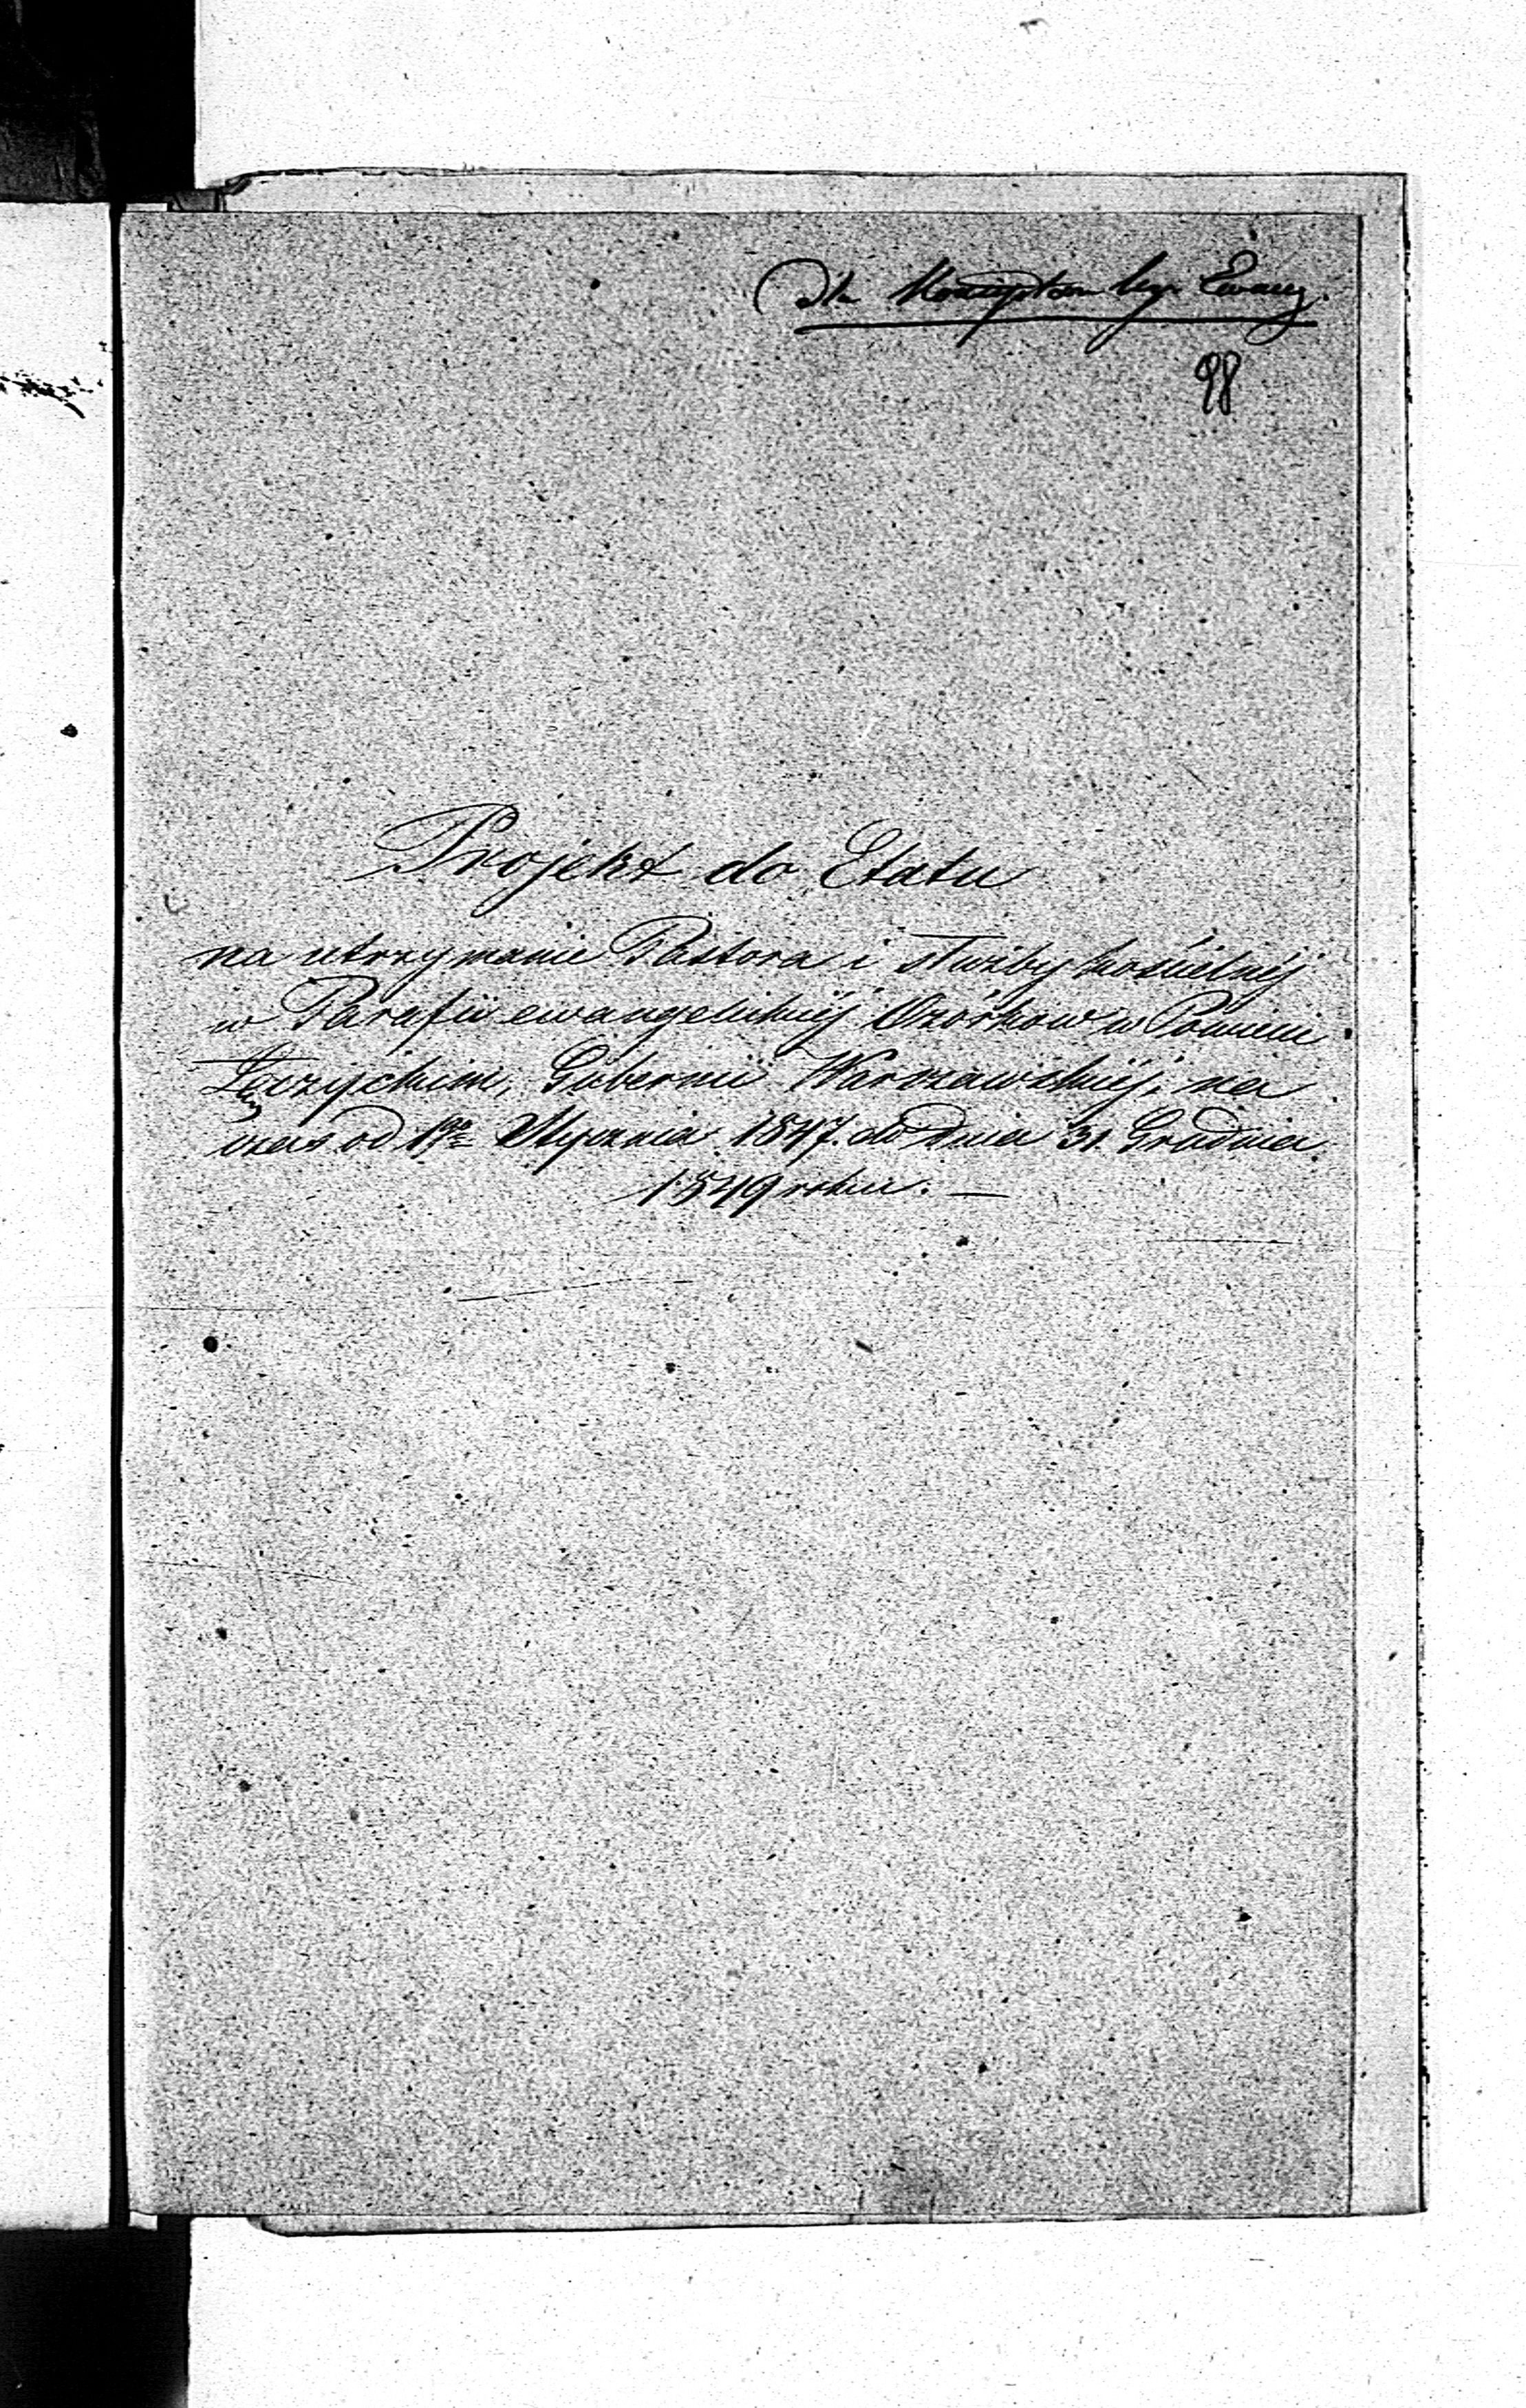 dla Konsystorza Ewang.
98
Projekt do Etatu
na utrzymanie Pastora i służby kościelnéj
w Parafii ewangelickiéj Ozorkow w Powiecie
Łęczyckim, Gubernii Warszawskiéj, na
czas od 1go Stycznia 1847. do dnia 31 Grudnia
1849 roku. —